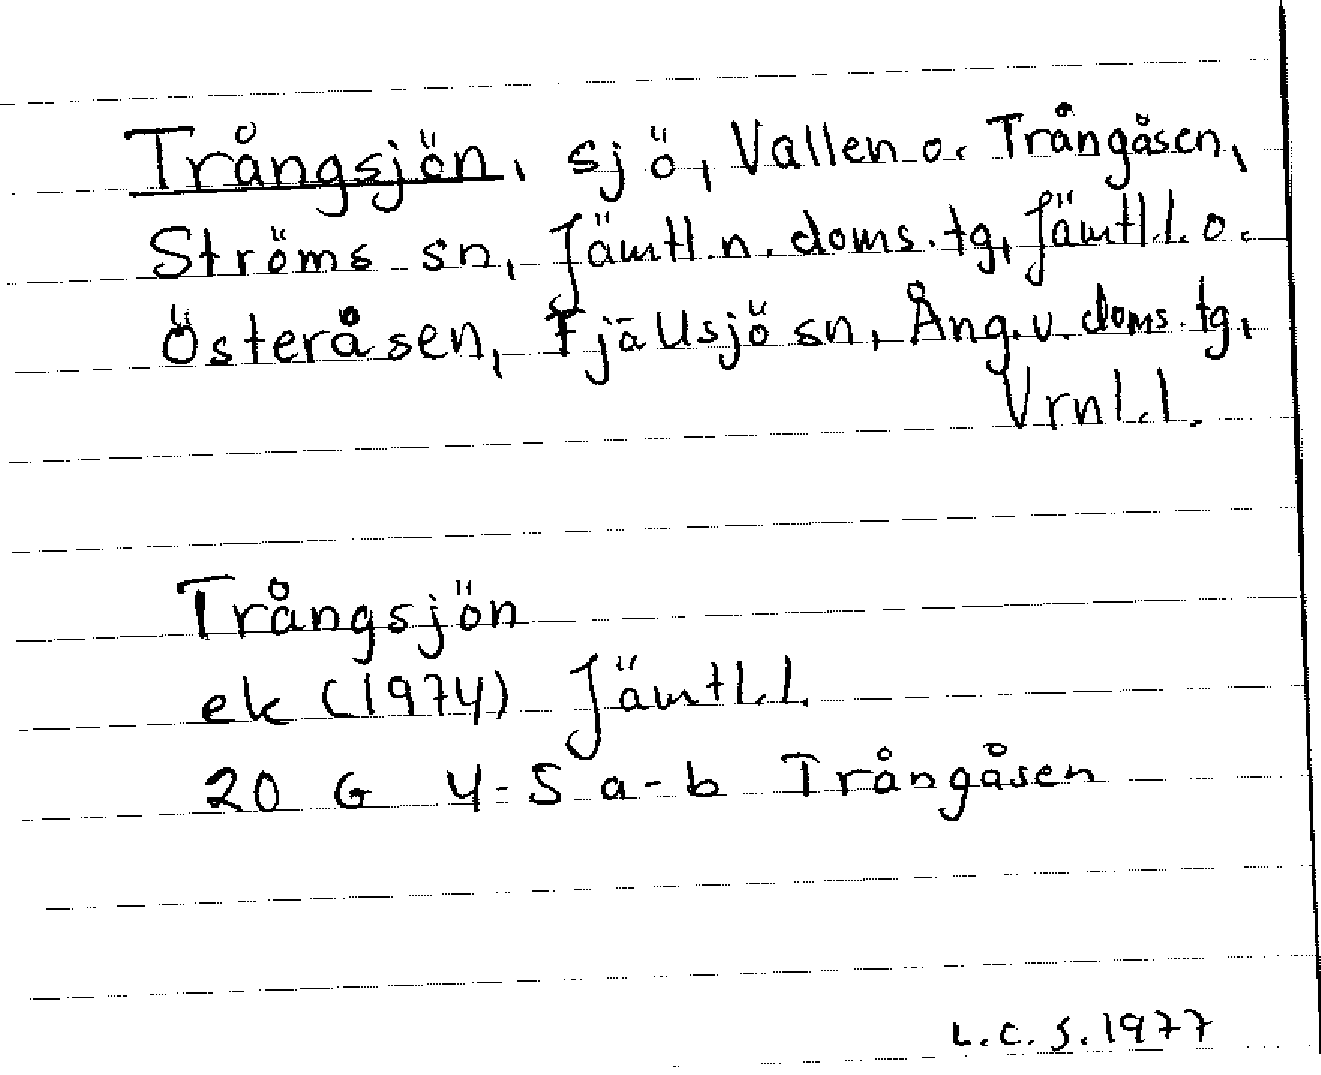 Trångsjön, sjö, Vallen o. Trångåsen,
Ströms sn, Jämtl.n. doms. tg, Jämtl.l. o.
Österåsen, Fjällsjö sn, Ång.v. doms. tg,
Vrnl.l.
Trångsjön
ek (1974) Jämtl.l.
20 G 4-5 a-b Trångåsen
L.C.S. 1977